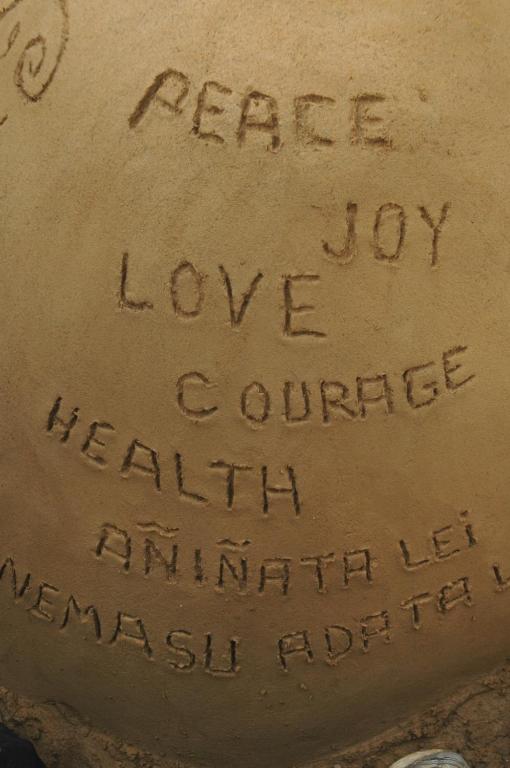 PEACE
JOY
LOVE
COURAGE
HEALTH
AÑIÑATA LEI
NEMASU ADATA